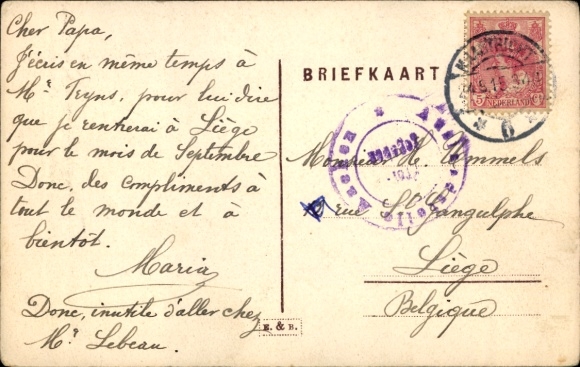 Cher Papa,
J'écris en même temps à
Mr Teyns, pour lui dire
que je rentrerai à Liège
pour le mois de Septembre
Donc, des compliments à
tout le monde et à
bientôt.
Maria
Donc, inutile d'aller chez
Mr Lebeau.
E. & B.
BRIEFKAART
5 NEDERLAND Ct
MAASTRICHT
6
Auslandstelle Aachen
Monsieur H. Ummels
rue St Gangulphe
Liège
Belgique